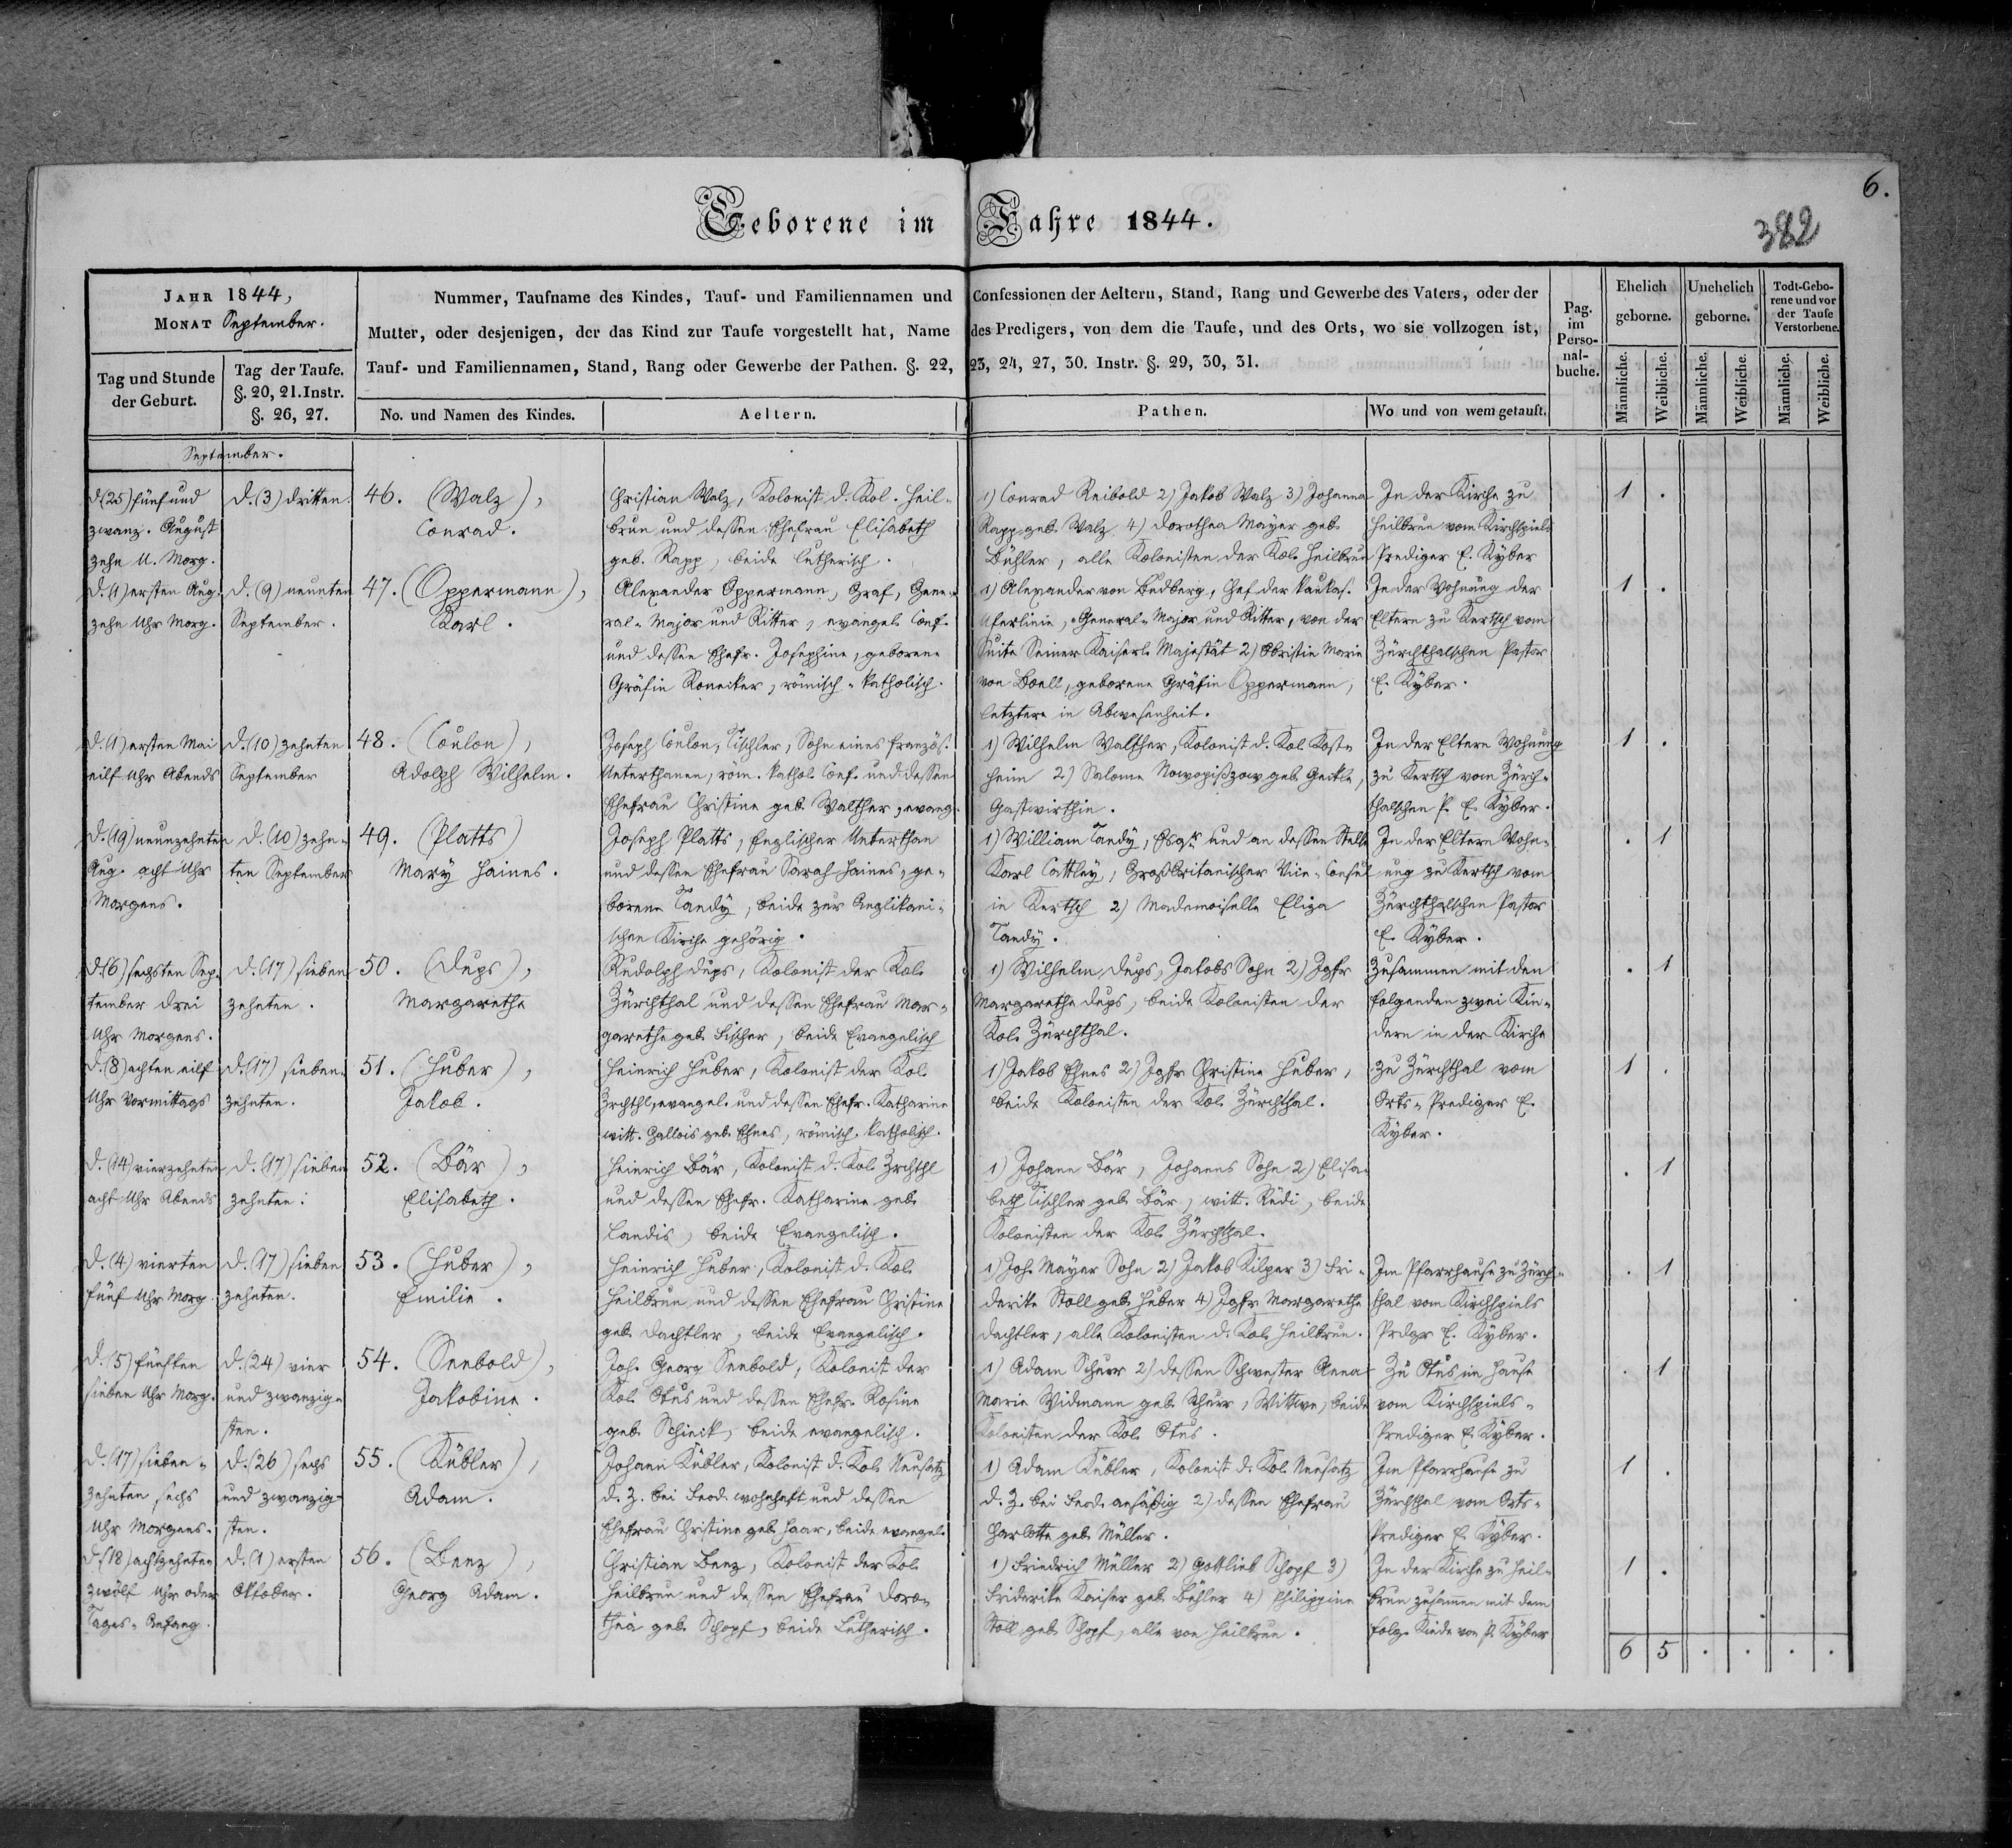 6.
382
Geborene im Jahre 1844.
JAHR 1844,
MONAT September.
Tag und Stunde
der Geburt.
Tag der Taufe.
§. 20, 21. Instr.
§. 26, 27.
Nummer, Taufname des Kindes, Tauf- und Familiennamen und Confessionen der Aeltern, Stand, Rang und Gewerbe des Vaters, oder der
Mutter, oder desjenigen, der das Kind zur Taufe vorgestellt hat, Name des Predigers, von dem die Taufe, und des Orts, wo sie vollzogen ist,
Tauf- und Familiennamen, Stand, Rang oder Gewerbe der Pathen. §. 22, 23, 24, 27, 30. Instr. §. 29, 30, 31.
No. und Namen des Kindes.
Aeltern.
Pathen.
Wo und von wem getauft.
Pag.
im
Perso-
nal-
buche.
Ehelich
geborne.
Unehelich
geborne.
Todt-Gebo-
rene und vor
der Taufe
Verstorbene.
Männliche.
Weibliche.
Männliche.
Weibliche.
Männliche.
Weibliche.
September.
d. (25) fünf und
zwanz. August
zehn U. Morg.
d. (3) dritten.
46. (Walz),
Conrad.
Christian Walz, Kolonist d. Kol. Heil-
brun und dessen Ehefrau Elisabeth
geb. Rapp, beide lutherisch.
1) Conrad Reibold 2) Jakob Walz 3) Johanna
Rapp geb. Walz 4) Dorothea Mayer geb.
Bühler, alle Kolonisten der Kol. Heilbrun
In der Kirche zu
Heilbrun vom Kirchspiels
Prediger E. Kyber
1 .
d. (1) ersten Aug.
zehn Uhr Morg.
d. (9) neunten
September.
47. (Oppermann),
Karl.
Alexander Oppermann, Graf, Gene-
ral-Major und Ritter, evangel. Conf.
und dessen Ehefr. Josephine, geborene
Gräfin Ronecker, römisch-katholisch.
1) Alexander von Budberg, Chef der kaukas.
Uferlinie, General-Major und Ritter, von der
Suite Seiner Kaiserl. Majestät 2) Obristin Marie
von Boell, geborene Gräfin Oppermann,
letztere in Abwesenheit.
In der Wohnung der
Eltern zu Kertsch vom
Zürchthalschen Pastor
E. Kyber.
1 .
d. (1) ersten Mai
eilf Uhr Abends
d. (10) zehnten
September
48. (Coulon),
Adolph Wilhelm.
Joseph Coulon, Tischler, Sohn eines französ.
Unterthanen, röm. kathol. Conf. und dessen
Ehefrau Christine geb. Walther, evang.
1) Wilhelm Walther, Kolonist d. Kol. Kost-
heim 2) Salome Nowopiszow geb. Geikle,
Gastwirthin.
In der Eltern Wohnung
zu Kertsch vom Zürch-
thalschen P. E. Kyber.
1 .
d. (19) neunzehnten
Aug. acht Uhr
Morgens.
d. (10) zehn-
ten September
49. (Platts)
Mary Haines.
Joseph Platts, Englischer Unterthan
und dessen Ehefrau Sarah Haines, ge-
borene Tandy, beide zur Anglikani-
schen Kirche gehörig.
1) William Tandy, Esqr. und an dessen Stelle
Karl Cattley, Großbritanischer Vice-Consul
in Kertsch 2) Mademoiselle Eliza
Tandy.
In der Eltern Wohn-
ung zu Kertsch vom
Zürchthalschen Pastor
E. Kyber.
. 1
d. (6) sechsten Sep-
tember drei
Uhr Morgens.
d. (17) sieben
zehnten.
50. (Dups),
Margarethe
Rudolph Dups, Kolonist der Kol.
Zürchthal und dessen Ehefrau Mar-
garethe geb. Fischer, beide Evangelisch
1) Wilhelm Dups, Jakobs Sohn 2) Jgfr
Margarethe Dups, beide Kolonisten der
Kol. Zürchthal.
Zusammen mit den
folgenden zwei Kin-
dern in der Kirche
. 1
d. (8) achten eilf
Uhr Vormittags
d. (17) sieben-
zehnten.
51. (Huber),
Jakob.
Heinrich Huber, Kolonist der Kol.
Zrchthl, evangel. und dessen Ehefr. Katharine
witt. Gallois geb. Ehnes, römisch-katholisch.
1) Jakob Ehnes 2) Jgfr Christine Huber,
beide Kolonisten der Kol. Zürchthal.
zu Zürchthal vom
Orts-Prediger E.
Kyber.
1 .
d. (14) vierzehnten
acht Uhr Abends
d. (17) sieben
zehnten.
52. (Bär),
Elisabeth.
Heinrich Bär, Kolonist d. Kol. Zrchthl
und dessen Ehefr. Katharine geb.
Landis, beide Evangelisch.
1) Johann Bär, Johanns Sohn 2) Elisa-
beth Tischler geb. Bär, witt. Rüdi, beide
Kolonisten der Kol. Zürchthal.
. 1
d. (4) vierten
fünf Uhr Morg.
d. (17) sieben
zehnten.
53. (Huber),
Emilie.
Heinrich Huber, Kolonist d. Kol.
Heilbrun und dessen Ehefrau Christine
geb. Dachtler, beide Evangelisch.
1) Joh. Mayer Sohn 2) Jakob Kilper 3) Fri-
derike Stoll geb. Huber 4) Jgfr Margarethe
Dachtler, alle Kolonisten d. Kol. Heilbrun.
Im Pfarrhause zu Zürch-
thal vom Kirchspiels
Prdgr E. Kyber.
. 1
d. (5) fünften
sieben Uhr Morg.
d. (24) vier
und zwanzig-
sten.
54. (Seebold),
Jakobine.
Joh. Georg Seebold, Kolonist der
Kol. Otus und dessen Ehefr. Rosine
geb. Schieck, beide evangelisch.
1) Adam Schurr 2) dessen Schwester Anna
Marie Widmann geb. Schurr, Wittwe, beide
Kolonisten der Kol. Otus.
Zu Otus im Hause
vom Kirchspiels-
Prediger E. Kyber.
. 1
d. (17) sieben-
zehnten sechs
Uhr Morgens.
d. (26) sechs
und zwanzig-
sten.
55. (Kübler),
Adam.
Johann Kübler, Kolonist d. Kol. Neusatz
d. Z. bei Feod. wohnhaft und dessen
Ehefrau Christine geb. Haar, beide evangel.
1) Adam Kübler, Kolonist d. Kol. Neusatz
d. Z. bei Feod. ansäßig 2) dessen Ehefrau
Charlotte geb. Müller.
Im Pfarrhause zu
Zürchthal vom Orts-
Prediger E. Kyber.
1 .
d. (18) achtzehnten
zwölf Uhr oder
Tages-Anfang.
d. (1) ersten
Oktober.
56. (Benz),
Georg Adam.
Christian Benz, Kolonist der Kol.
Heilbrun und dessen Ehefrau Doro-
thea geb. Schopf, beide Lutherisch.
1) Friedrich Müller 2) Gottlieb Schopf 3)
Friderike Kaiser geb. Bühler 4) Philippine
Stoll geb. Schopf, alle von Heilbrun.
In der Kirche zu Heil-
brun zusamen mit dem
folg. Kinde von P. Kyber
1 .
6 5 . . . .